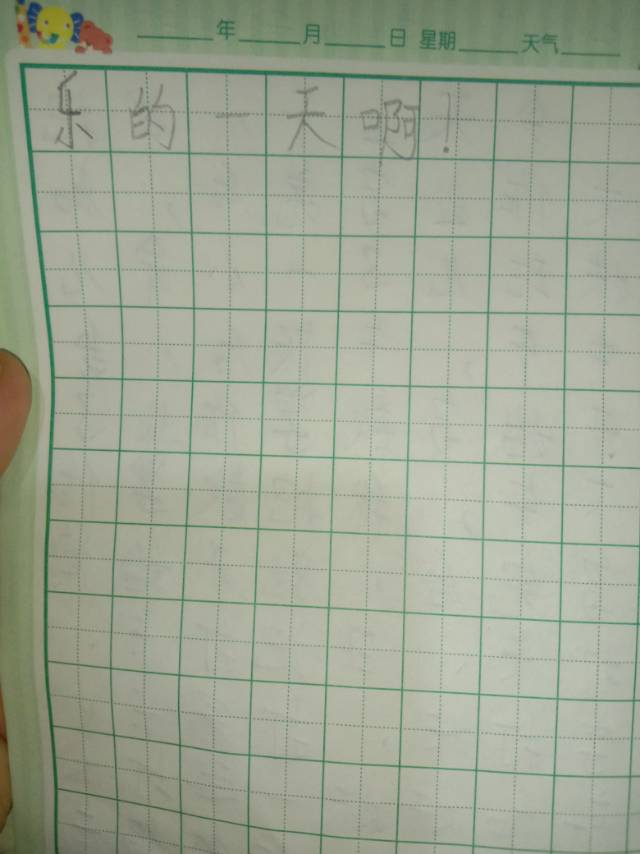 年 月 日 星期 天气
乐的一天啊！